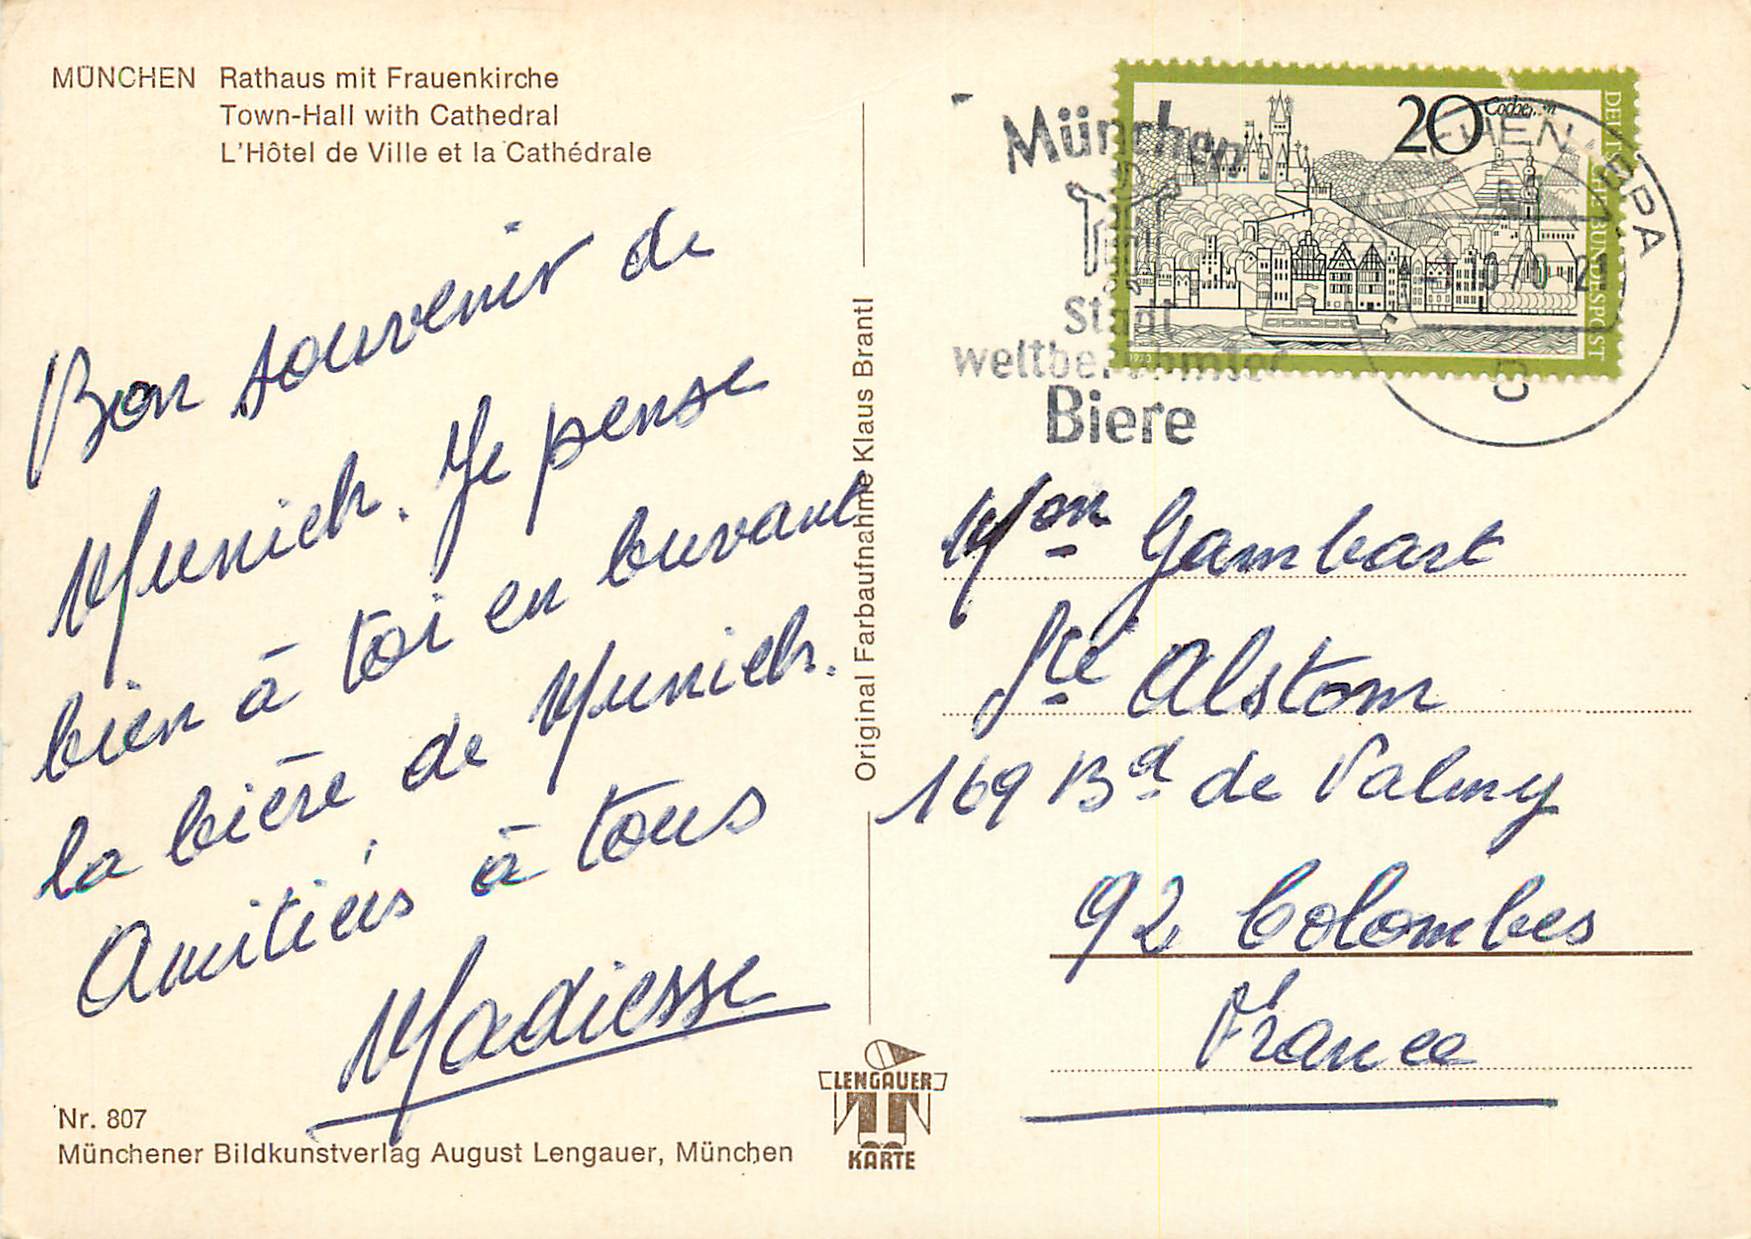 MÜNCHEN Rathaus mit Frauenkirche
Town-Hall with Cathedral
L'Hôtel de Ville et la Cathédrale
Bon souvenir de
Munich. Je pense
bien à toi en buvant
la bière de Munich.
Amitiés à tous
Madiesse
Nr. 807
Münchener Bildkunstverlag August Lengauer, München
Original Farbaufnahme Klaus Brantl
LENGAUER
KARTE
München
Stadt
weltberühmter
Biere
20 Cochem
DEUTSCHE BUNDESPOST
1970
Mon Gambart
Sté Alstom
169 Bd de Valmy
92 Colombes
France